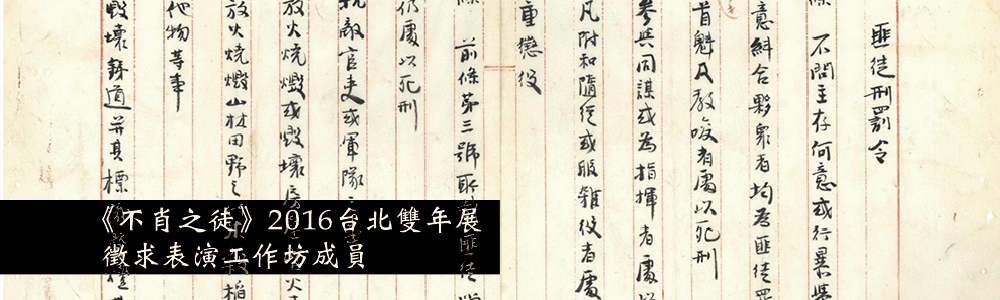 匪徒刑罰令
條 不問主存何意或行暴舉
意糾合夥眾者均為匪徒罪
首魁及教唆者處以死刑
參與同謀或為指揮者處以
凡附和隨從或服雜役者處
重懲役
條 前條第三號所匪徒
仍處以死刑
抗敵官吏或軍隊
放火燒燬或毀壞房火
放火燒燬山林田野之稻
他物等事
毀壞鉄道并其標
《不肖之徒》2016台北雙年展
徵求表演工作坊成員